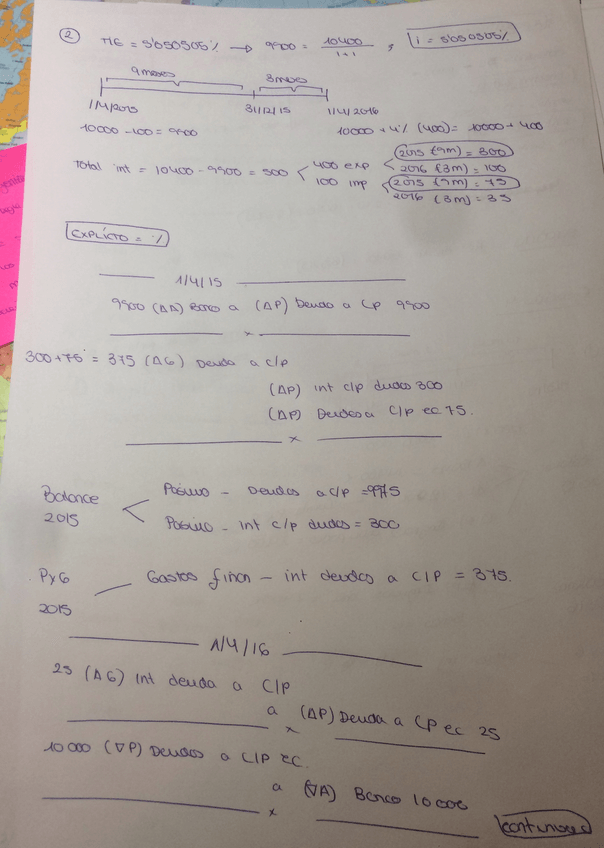 2 TIE = 5'050505% → 9900 = 10400 / 1+i ; i = 5'050505%
9 meses 3 meses
1/4/2015 31/12/15 1/4/2016
10000 - 100 = 9900 10000 + 4% (400) = 10000 + 400
Total int = 10400 - 9900 = 500 400 exp 2015 (9m) = 300
2016 (3m) = 100
100 imp 2015 (9m) = 75
2016 (3m) = 35
EXPLÍCTO = %
1/4/15
9900 (ΔA) Banco a (ΔP) Deuda a CP 9900
x
300+75 = 375 (ΔG) Deuda a c/p
(ΔP) int c/p deudas 300
(ΔP) Deudas a C/P ec 75.
x
Balance Pasivo - Deudas a C/P = 9975
2015 Pasivo - int c/p deudas = 300
PyG Gastos finan - int deudas a C/P = 375.
2015
1/4/16
25 (ΔG) Int deuda a C/P
a (ΔP) Deuda a CP ec 25
x
10000 (∇P) Deudas a C/P ec.
a (∇A) Banco 10000
x